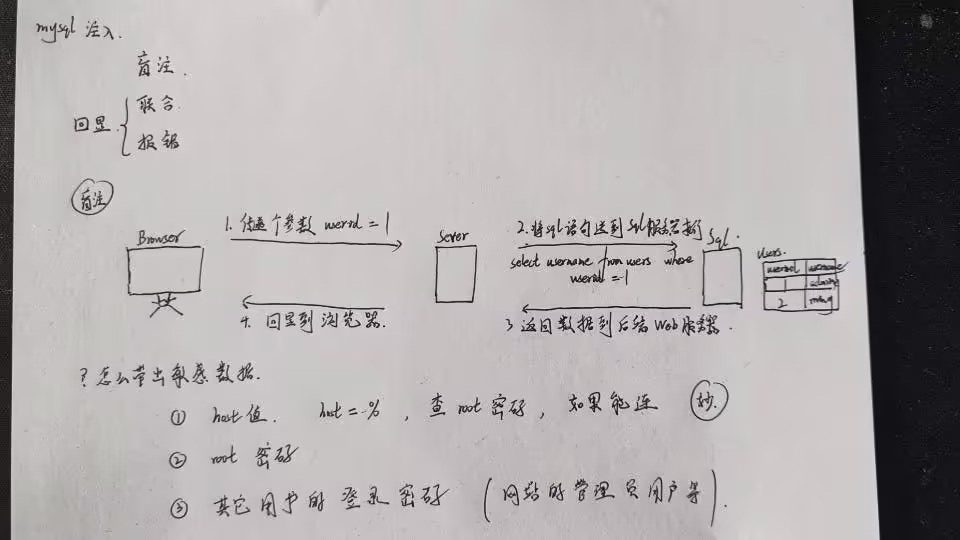 mysql 注入.
盲注.
回显 { 联合.
报错
盲注
1. 传递个参数 userid = 1
2. 将sql语句送到sql服务器执行
Browser
Sever
Sql.
users.
userid username
select username from users where
userid = 1
1 admin
2
4. 回显到浏览器.
3. 返回数据到后端Web服务器.
? 怎么带出敏感数据.
① host值. host = %, 查 root 密码, 如果能连 妙.
② root 密码
③ 其它用户的登录密码 (网站的管理员用户等).